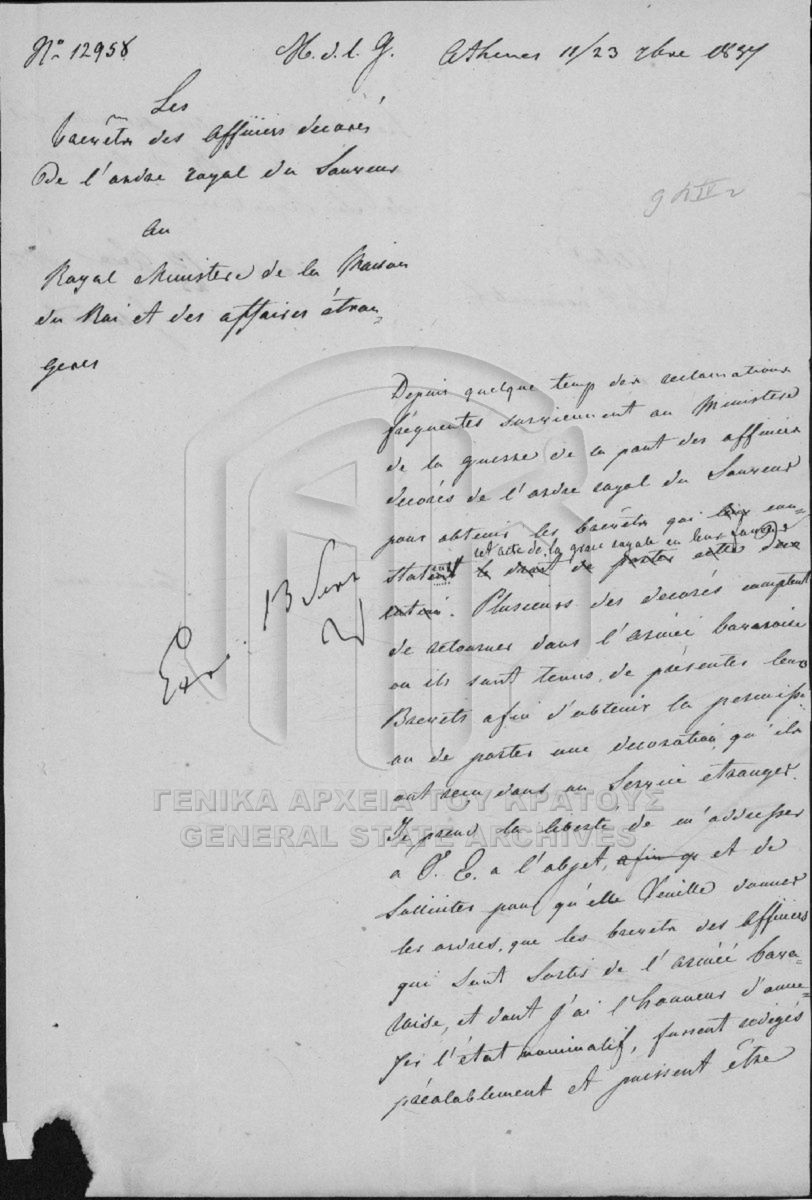 No 12958 M. d. l. G. Athenes 11/23 xbre 1837
Les
brevêts des officiers decorés
De l'ordre royal du Sauveur
au
Royal Ministere de la Maison
du Roi et des affaires étran-
geres
Depuis quelque temp des reclamations
fréquentes surviennent au Ministere
de la guerre de la part des officiers
decorés de l'ordre royal du Sauveur
pour obtenir les brevêts qui leur con-
cet acte de la grace royale en leur faveur
statent le droit de porter cette deco-
ration. Plusieurs des decorés comptent
de retourner dans l'armée bavaroise
ou ils sont tenus, de présenter leurs
Brevets afin d'obtenir la permissi-
on de porter une decoration, qu'ils
ont reçu dans un Service etranger.
Je prend la liberté de m'addresser
a V. E. a l'objet, afin q et de
Solliciter pour qu'elle Veuille donner
les ordres, que les brevêts des officiers
qui sont Sortis de l'armée bava-
roise, et dont j'ai l'honneur d'anne-
xer l'état nominatif, fussent redigés
préalablement et puissent être
Exp. 13
ΓΕΝΙΚΑ ΑΡΧΕΙΑ ΤΟΥ ΚΡΑΤΟΥΣ
GENERAL STATE ARCHIVES